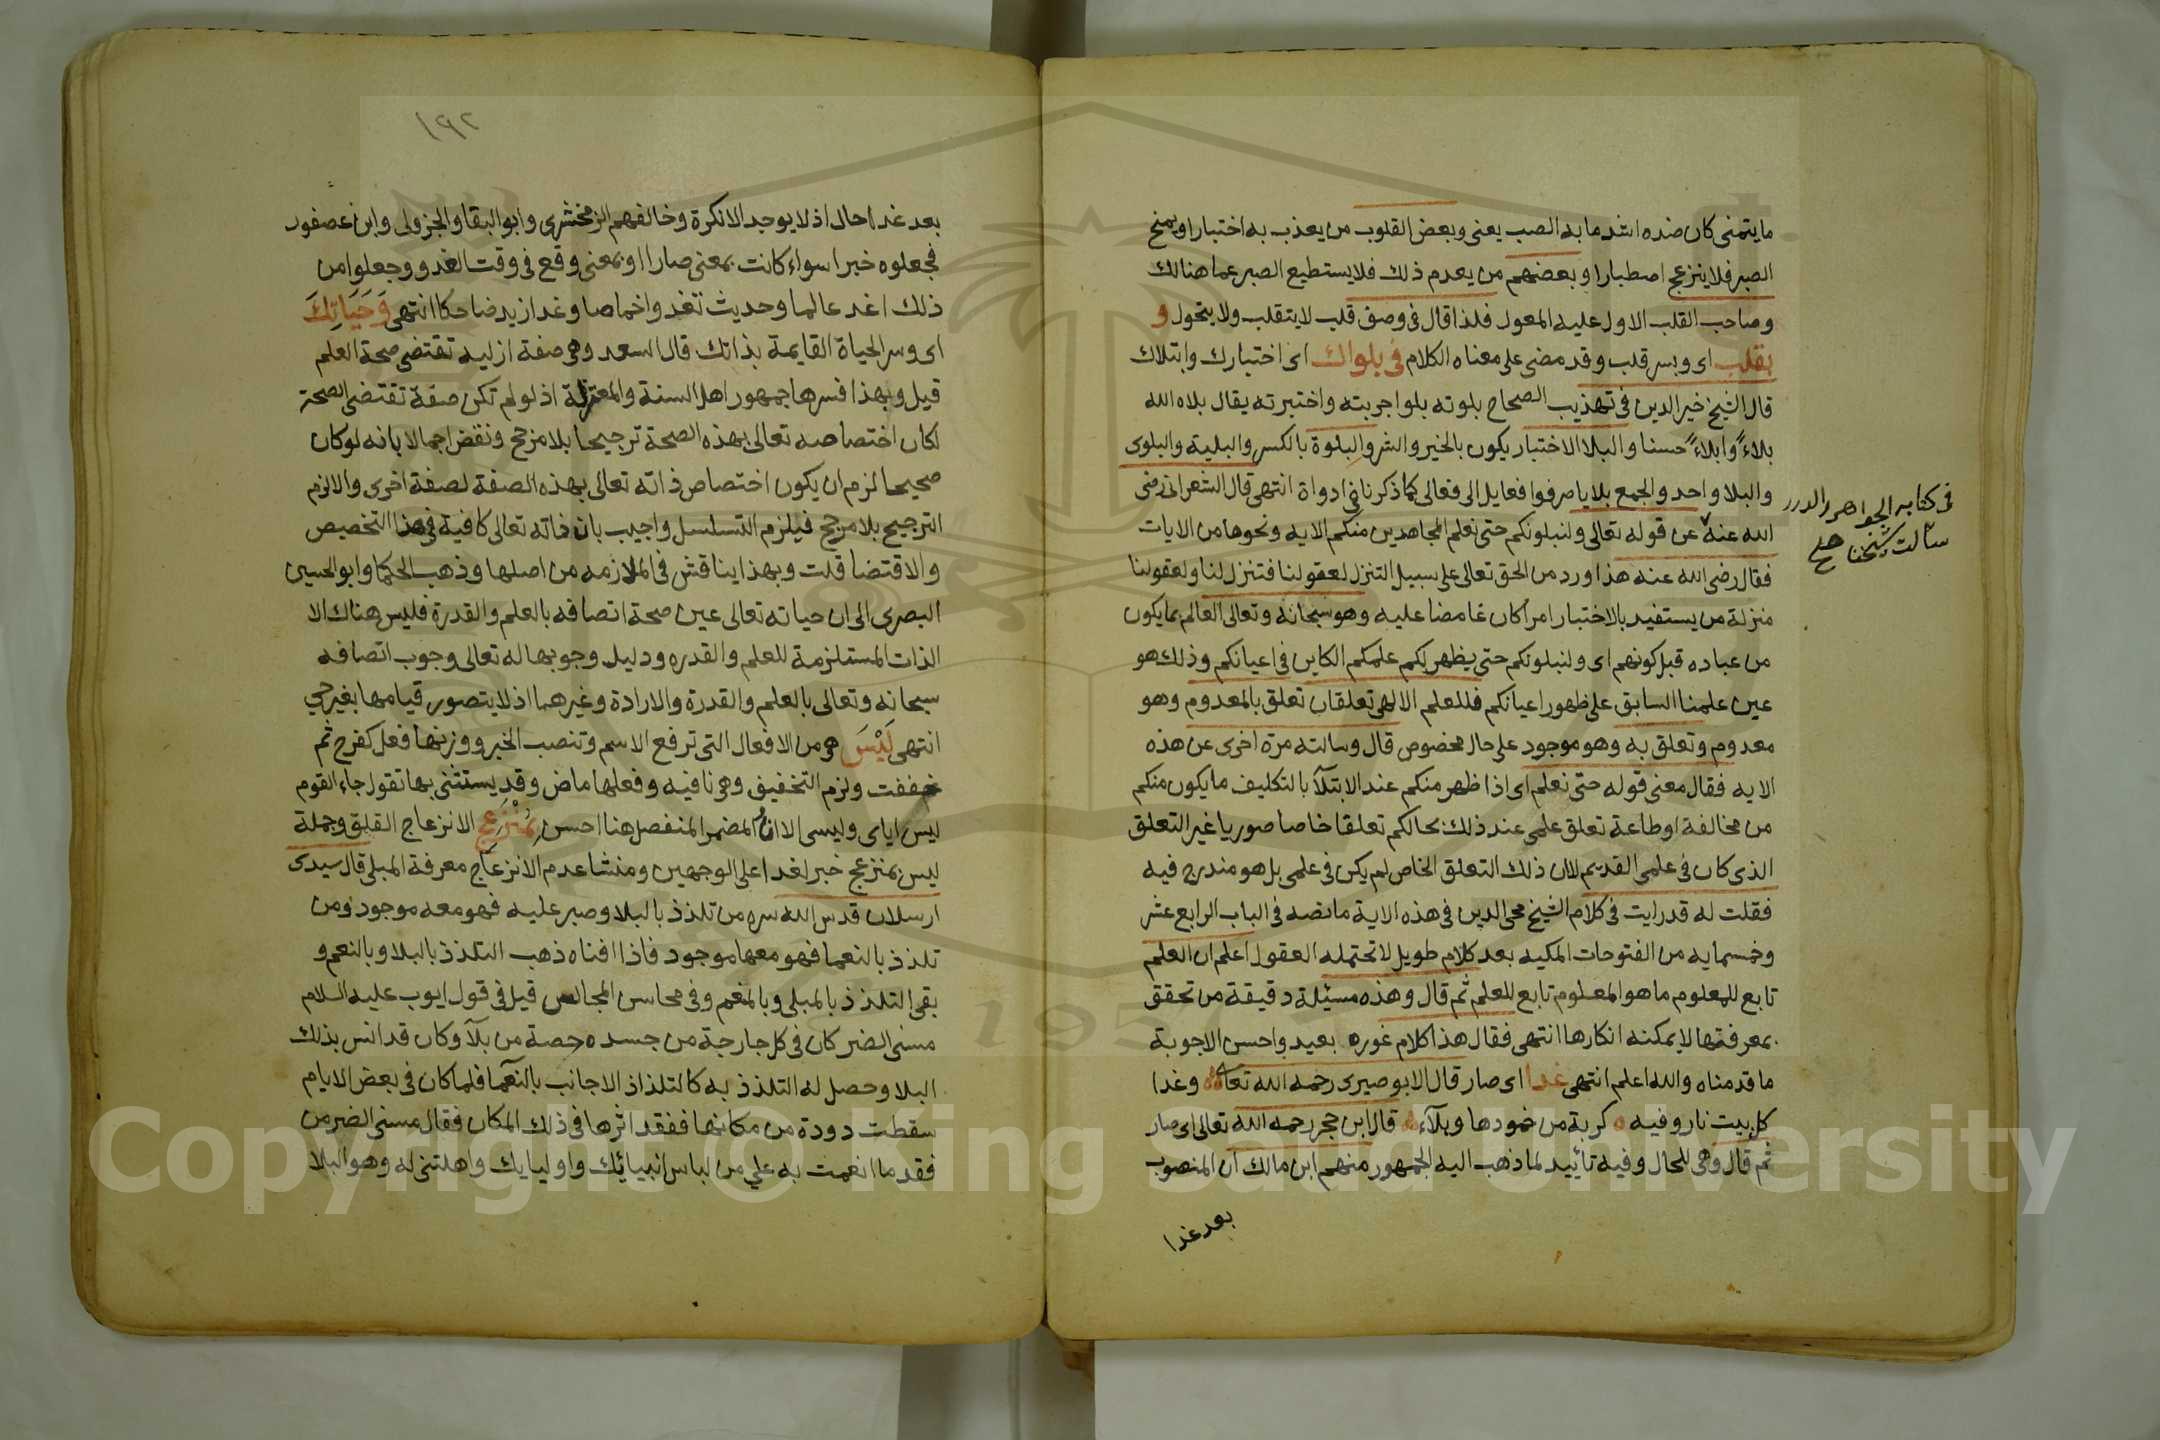 ما يتمنى كان ضده اشد ما به الصب يعني وبعض القلوب من يعذب به اختبارا ويمنح
الصبر فلا ينزعج اصطبارا وبعضهم من يعدم ذلك فلا يستطيع الصبر عما هنالك
وصاحب القلب الاول عليه المعول فلذا قال في وصف قلب لا يتقلب ولا يتحول و
بقلب اي وبسر قلب وقد مضى على معناه الكلام في بلواك اي اختبارك وابتلاك
قال الشيخ خير الدين في تهذيب الصحاح بلوته بلوا جربته واختبرته يقال بلاه الله
بلاءً وابلاءً حسنا والبلا الاختبار يكون بالخير والشر والبلوة بالكسر والبلية والبلوى
والبلا واحد والجمع بلايا صرفوا فعايل الى فعالى كما ذكرنا في ادواة انتهى قال الشعراني رضي
في كتابه الجواهر والدرر
سالت شيخنا
الله عنه عن قوله تعالى ولنبلونكم حتى نعلم المجاهدين منكم الايه ونحوها من الايات
فقال رضي الله عنه هذا ورد من الحق تعالى على سبيل التنزل لعقولنا فتنزل لنا ولعقولنا
منزلة من يستفيد بالاختبار امرا كان غامضا عليه وهو سبحانه وتعالى العالم بما يكون
من عباده قبل كونهم اي ولنبلونكم حتى يظهر لكم علمكم الكاين في اعيانكم وذلك هو
عين علمنا السابق على ظهور اعيانكم فللعلم الالهي تعلقان تعلق بالمعدوم وهو
معدوم وتعلق به وهو موجود على حال مخصوص قال وسالته مرة اخرى عن هذه
الايه فقال معنى قوله حتى نعلم اي اذا ظهر منكم عند الابتلآ بالتكليف ما يكون منكم
من مخالفة او طاعة تعلق علمي عند ذلك بحالكم تعلقا خاصا صوريا غير التعلق
الذي كان في علمي القديم لا ان ذلك التعلق الخاص لم يكن في علمي بل هو مندرج فيه
فقلت له قد رايت في كلام الشيخ محي الدين في هذه الاية ما نصه في الباب الرابع عشر
وخمسمايه من الفتوحات المكيه بعد كلام طويل لا تحتمله العقول اعلم ان العلم
تابع للمعلوم ما هو المعلوم تابع للعلم ثم قال وهذه مسئلة دقيقة من تحقق
بمعرفتها لا يمكنه انكارها انتهى فقال هذا كلام غوره بعيد واحسن الاجوبة
ما قدمناه والله اعلم انتهى غدا اي صار قال الابوصيري رحمه الله تعالى وغدا
كل بيت نار وفيه كربة من خمودها وبلآء قال ابن حجر رحمه الله تعالى اي صار
ثم قال وهي للحال وفيه تاييد لما ذهب اليه الجمهور منهم ابن مالك ان المنصوب
بعد غدا
١٩٢
بعد غدا حال اذ لا يوجد الا نكرة وخالفهم الزمخشري وابو البقا والجزولي وابن عصفور
فجعلوه خبرا سواء كانت بمعنى صار او بمعنى وقع في وقت الغدو وجعلوا من
ذلك اغد عالما وحديث تغدو خماصا وغدا زيد ضاحكا انتهى وَحَيَاتِكَ
اي وسر الحياة القايمة بذاتك قال السعد وهي صفة ازليه تقتضي صحة العلم
قيل وبهذا فسرها جمهور اهل السنة والمعتزلة اذ لو لم تكن صفة تقتضي الصحة
لكان اختصاصه تعالى بهذه الصحة ترجيحا بلا مرجح ونقض اجمالا بانه لو كان
صحيحا لزم ان يكون اختصاص ذاته تعالى بهذه الصفة لصفة اخرى والا لزم
الترجيح بلا مرجح فيلزم التسلسل واجيب بان ذاته تعالى كافية في هذا التخصيص
والاقتضا قلت وبهذا يناقش في الملازمه من اصلها وذهب الحكما وابو الحسين
البصري الى ان حياته تعالى عين صحة اتصافه بالعلم والقدرة فليس هناك الا
الذات المستلزمة للعلم والقدره ودليل وجوبها له تعالى وجوب اتصافه
سبحانه وتعالى بالعلم والقدرة والارادة وغيرهما اذ لا يتصور قيامها بغير حي
انتهى لَيْسَ هو من الافعال التي ترفع الاسم وتنصب الخبر ووزنها فعل كفرح ثم
خففت ولزم التخفيف وهي نافيه وفعلها ماض وقد يستثنى بها تقول جاء القوم
ليس اياي وليسى الا ان المضمر المنفصل هنا احسن بِمُنْزَعِجٍ الانزعاج القلق وجملة
ليس بمنزعج خبر لغدا على الوجهين ومنشا عدم الانزعاج معرفة المبلي قال سيدي
ارسلان قدس الله سره من تلذذ بالبلا وصبر عليه فهو معه موجود ومن
تلذذ بالنعما فهو معها موجود فاذا افناه ذهب التلذذ بالبلا وبالنعم و
بقي التلذذ بالمبلي وبالمنعم وفي محاسن المجالس قيل في قول ايوب عليه السلام
مسني الضر كان في كل جارحة من جسده حصة من بلآ وكان قد انس بذلك
البلا وحصل له التلذذ به كالتلذاذ الاجانب بالنعما فلما كان في بعض الايام
سقطت دودة من مكانها ففقد اثرها في ذلك المكان فقال مسني الضر من
فقد ما انعمت به علي من لباس انبيائك واوليايك واهلتني له وهو البلا
Copyright © King Saud University